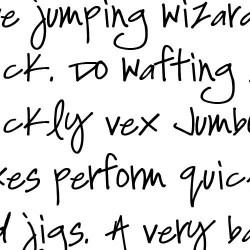 e jumping wizard
ck. Do wafting
ckly vex Jumb
xes perform quic
d jigs. A very ba